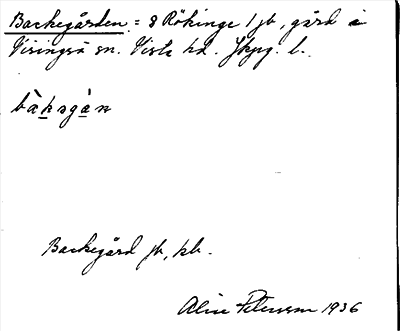 Backegården = 8 Rökinge 1 jb, gård i
Visingsö sn. Vista hd. Jkpg. l.
bàksgàn
Backegård jb, kb.
Alice Petersson 1936